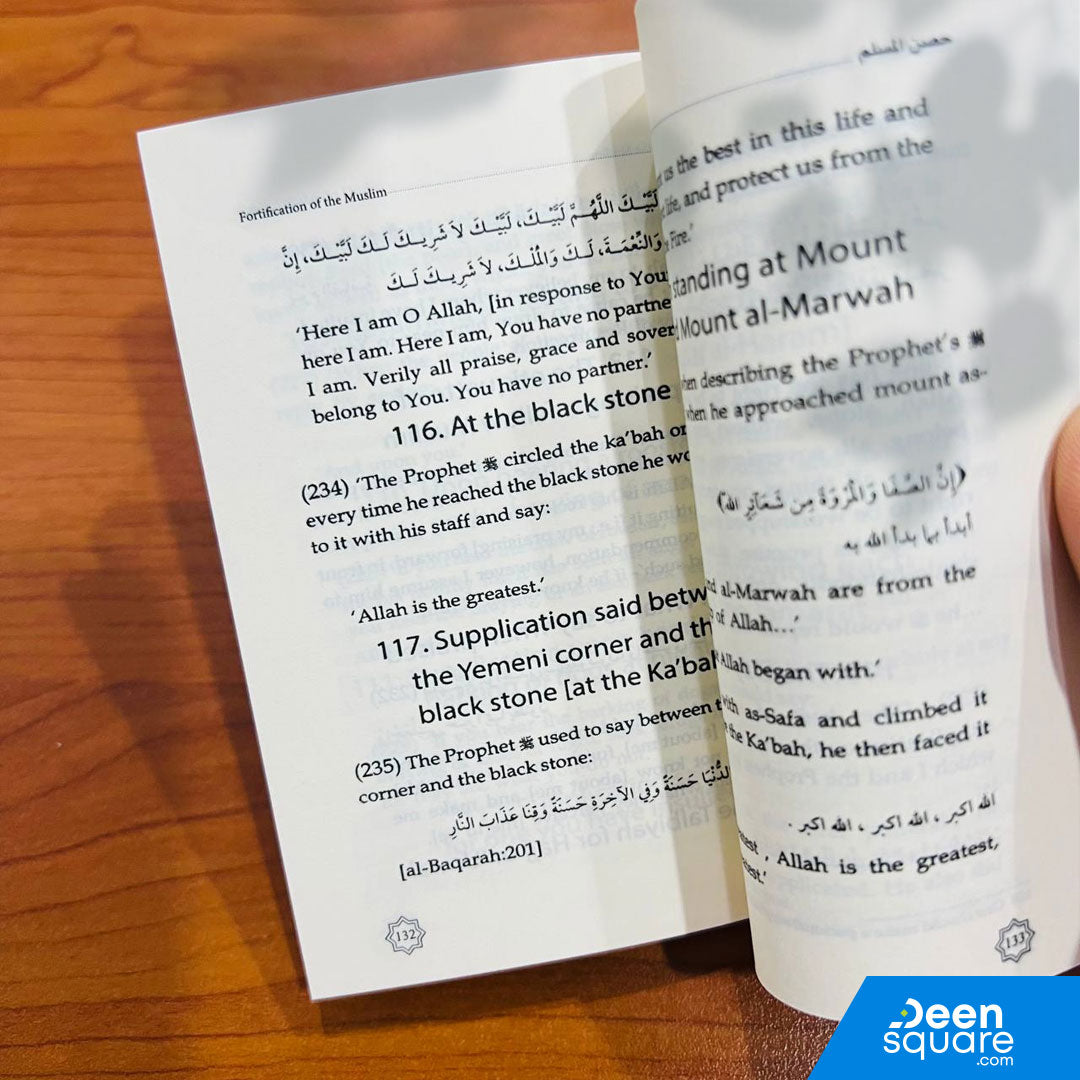 Fortification of the Muslim
لَبَّيْكَ اللَّهُمَّ لَبَّيْكَ، لَبَّيْكَ لاَ شَرِيكَ لَكَ لَبَّيْكَ، إِنَّ
وَالنِّعْمَةَ، لَكَ وَالْمُلْكَ، لاَ شَرِيكَ لَكَ
‘Here I am O Allah, [in response to You
here I am. Here I am, You have no partne
I am. Verily all praise, grace and sover
belong to You. You have no partner.’
116. At the black stone
(234) ‘The Prophet ﷺ circled the ka’bah on
every time he reached the black stone he wo
to it with his staff and say:
‘Allah is the greatest.’
117. Supplication said betw
the Yemeni corner and th
black stone [at the Ka’bah
(235) The Prophet ﷺ used to say between t
corner and the black stone:
الدُّنْيَا حَسَنَةً وَفِي الآخِرَةِ حَسَنَةً وَقِنَا عَذَابَ النَّارِ
[al-Baqarah:201]
132
حصن المسلم
us the best in this life and
life, and protect us from the
Fire.’
standing at Mount
Mount al-Marwah
when describing the Prophet’s ﷺ
when he approached mount as-
﴿إِنَّ الصَّفَا وَالْمَرْوَةَ مِن شَعَآئِرِ اللهِ﴾
أبدأ بما بدأ الله به
al-Marwah are from the
of Allah...’
Allah began with.’
with as-Safa and climbed it
the Ka’bah, he then faced it
الله اكبر ، الله اكبر ، الله اكبر .
, Allah is the greatest,
133
Deen
square
.com